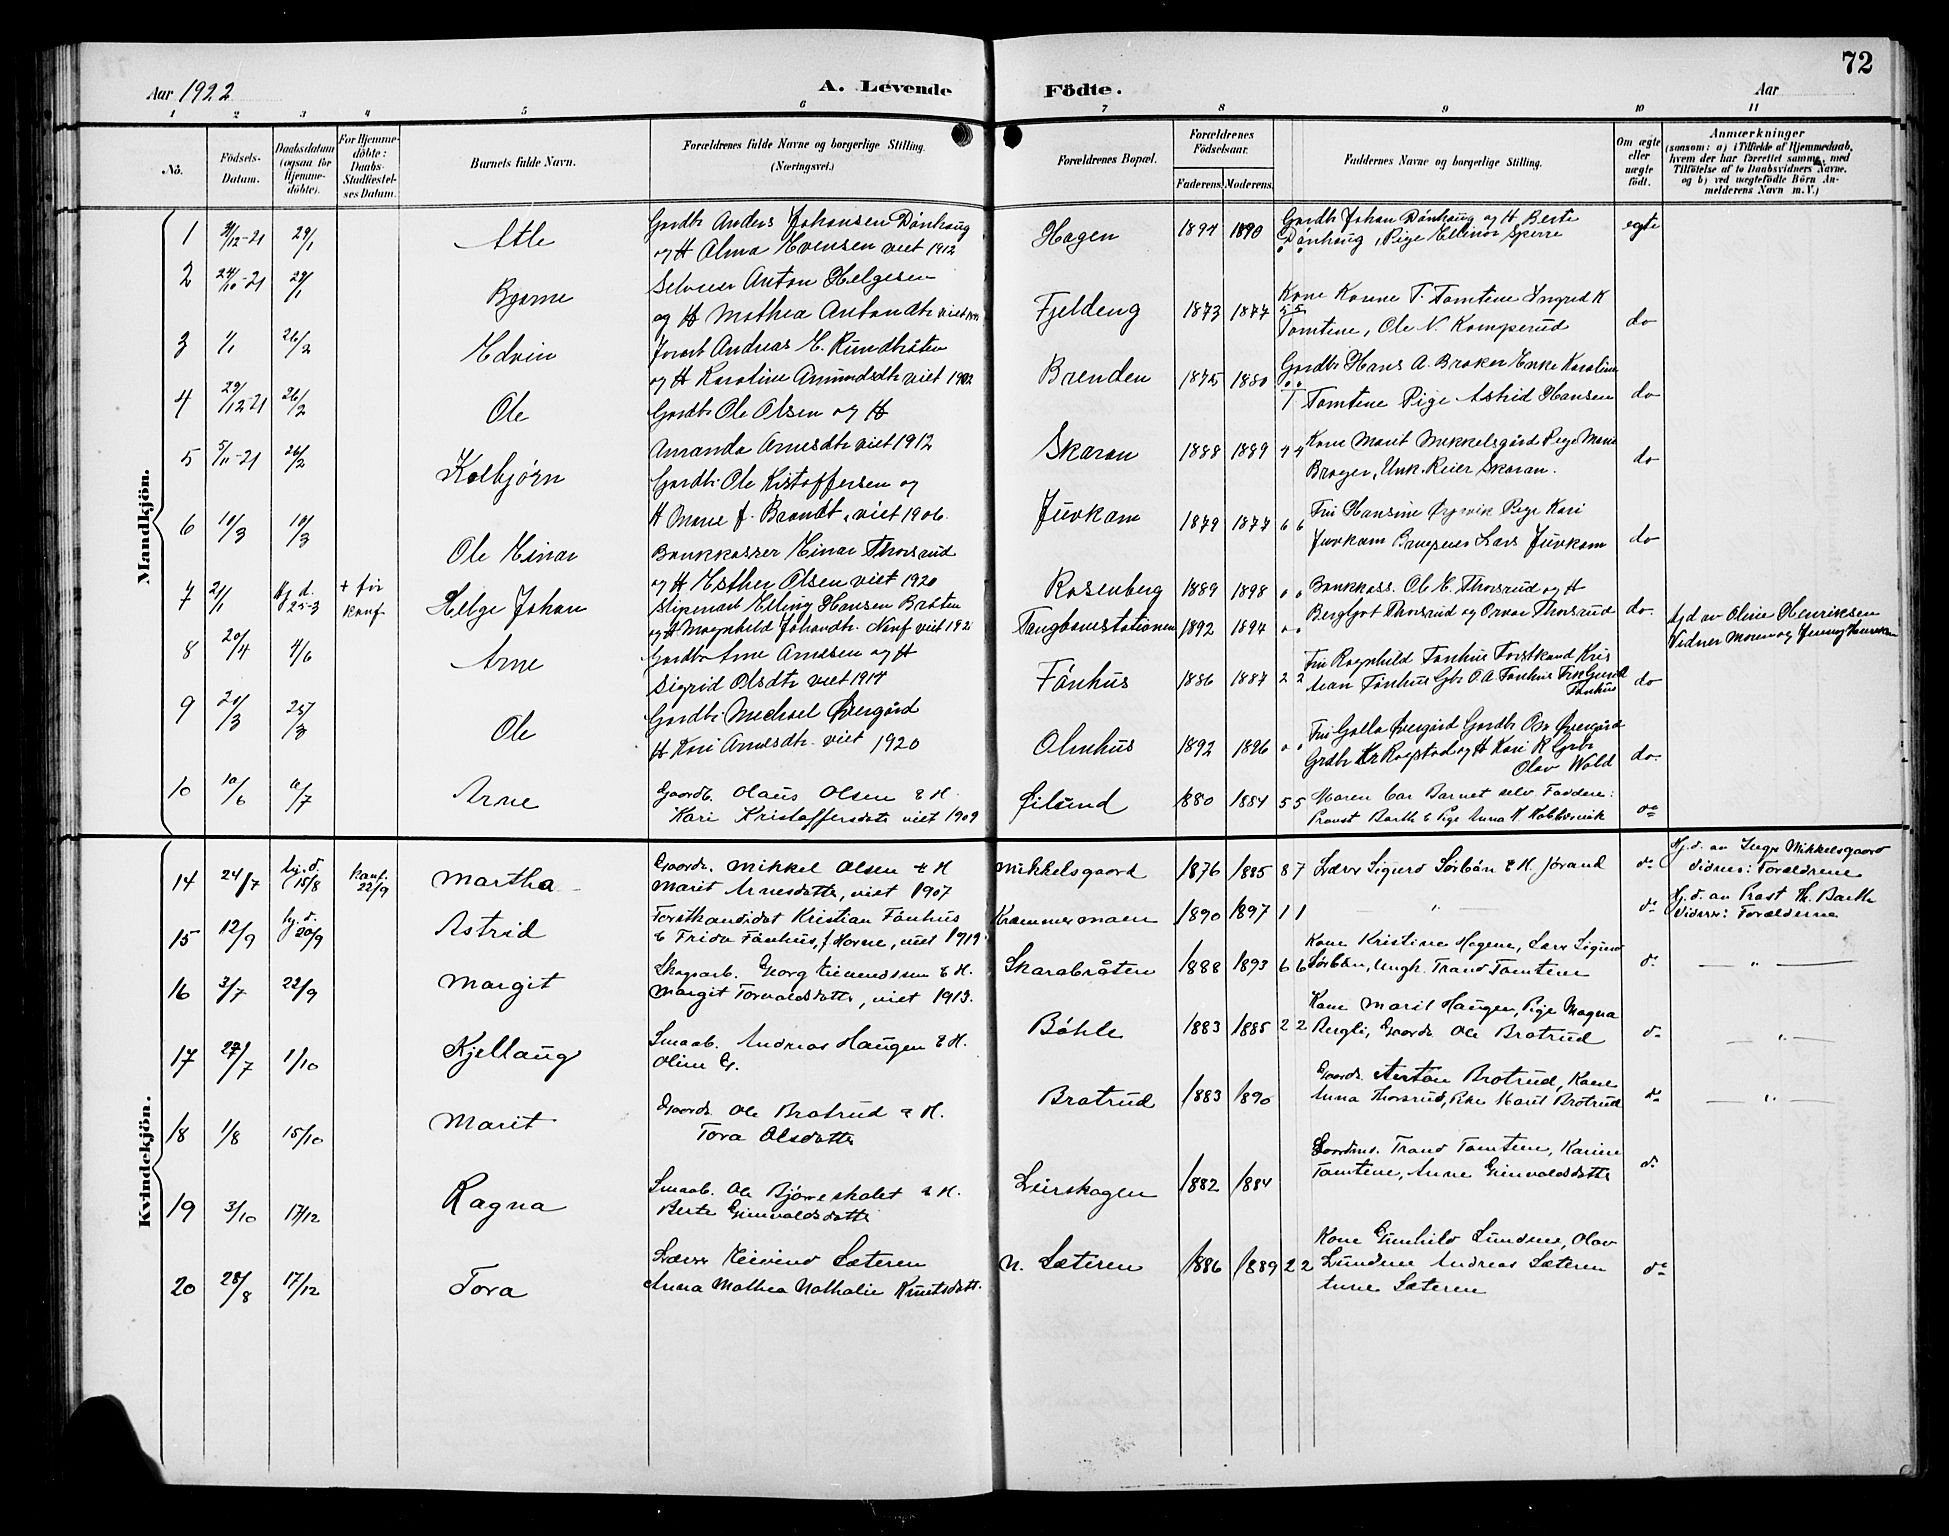 72
Aar 1922
A. Levende
Födte.
Aar
1 2 3 4 5 6 7 8 9 10 11
No.
Födsels-
Datum.
Daabsdatum
(ogsaa for
Hjemme-
döbte).
For Hjemme-
döbte:
Daabs-
Stadfæstel-
ses Datum.
Barnets fulde Navn.
Forældrenes fulde Navne og borgerlige Stilling.
(Næringsvei.)
Forældrenes Bopæl.
Forældrenes
Födselsaar.
Faderens. Moderens.
Faddernes Navne og borgerlige Stilling.
Om ægte
eller
uægte
födt.
Anmærkninger
(saasom: a) i Tilfælde af Hjemmedaab,
hvem der har forrettet samme, med
Tilföielse af to Daabsvidners Navne,
og b) ved uægtefödte Börn An-
melderens Navn m. V.)
Mandkjön.
1 31/12-21 29/1 Atle
Gardbr Anders Johansen Dönhaug
og H Alma Evensen viet 1912
Hagen 1894 1890
Gardb Johan Dönhaug og H Berte
Dönhaug, Pige Ellinor Sperre
egte
2 24/10-21 29/1 Bjarne
Selveier Anton Helgesen
og H Mathea Antondtr viet
Fjeldeng 1873 1877 5 5
Kone Konne T. Tomtene Ingrid K
Tomtene, Ole N Komperud
do
3 1/1 26/2 Edvin
Forarb Andreas E. Rundbråten
og H Karoline Amundsdtr viet 1902
Brenden 1875 1880
Gardbr Hans A. Braker Enke Karoline
T Tomtene Pige Astrid Hansen
do
4 29/12-21 26/2 Ole
Gardbr Ole Olsen og H
Amanda Arnesdtr viet 1912
Skaran 1888 1889 4 4
Kone Marit Mikkelsgård Pige Marie
Brager, Unk. Reier Skaran.
do
5 5/11-21 26/2 Kolbjørn
Gardbr Ole Kristoffersen og
H Marie f. Brandt, viet 1906.
Juvkam 1879 1877 6 6
Fru Hansine Pige Kari
Juvkam Lars Juvkam
do
6 10/3 10/3 Ole Einar
Bankkasser Einar Thorsrud
og H Esther Olsen viet 1920
Rosenberg 1889 1898
Bankkass. Ole E. Thorsrud og H
Bergljot Thorsrud og Orvar Thorsrud
do.
7 21/1 Hj d. 25-3 + før konf. Helge Johan
Slipearb Elling Hansen Bråten
og H Magnhild Johandtr. viet
Taugbanestationen 1892 1894
Hjd av Oline Henriksen
Vidner Moren og Henriksen
8 20/4 4/6 Arne
Gardbr Arne Arnesen og H
Sigrid Olsdtr viet 1914
Fönhus 1886 1887 2 2
Fru Ragnhild Fönhus Forstkand Kris
tian Fönhus Gbr O.A. Fönhus Frk Gunhild
Fönhus
do
9 20/3 25/3 Ole
Gardbr Michael Øvergård
H Kari Arnesdtr. viet 1920
Olmhus 1892 1896
Fru Golla Øvergård Gardbr Ove Øvergård
Grdbr Kr Rogstad og H Kari R Grbr
Olav Wold
do.
10 10/6 9/7 Arne
Gaardb. Olaus Olsen & H.
Kari Kristoffersdatr viet 1909
Øilund 1880 1884 5 5
Maren bar Barnet selv. Faddere:
Provst Barth & Pige Anna K Kobbervik
do
Kvindekjön.
14 24/7 hj. d. 15/8 konf. 22/9 Martha
Gaardb. Mikkel Olsen & H
Marit Arnesdatter, viet 1907
Mikkelsgaard 1876 1885 8 7
Lærer Sigurd Sörbön & H. Jörand
do
Hj. d. av Inger Mikkelsgaard
Vidner: Forældrene
15 12/9 hj. d. 20/9 Astrid
Forstkandidat Kristian Fönhus
& Frida Fönhus, f. Horne, viet 1919
Krammermoen 1890 1897 1 1
"
do
Hj. d. av Prost Th. Barth
Vidner: Forældrene
16 3/7 22/9 Margit
Skogarb. Georg Eievindssen & H.
Margit Torvaldsdatter, viet 1913.
Skarabråten 1888 1893 6 6
Kone Kristine Hagene, Lærer Sigurd
Sörbön, Ungk. Trand Tomtene
do "
17 27/7 1/10 Kjellaug
Smaab. Andreas Haugen & H.
Oline G.
Böhle 1883 1885 2 2
Kone Marit Haugen, Pige Magna
Bergli, Gaardb. Ole Bratrud
do "
18 1/8 15/10 Marit
Gaardb. Ole Bratrud & H.
Tora Olsdatter
Bratrud 1883 1890
Gaardb. Anton Bratrud, Kone
Anna Thorsrud, Enke Marit Bratrud
do "
19 3/10 17/12 Ragna
Smaab. Ole Bjørneskalet & H.
Berte Grimvaldsdatter
Leirskogen 1882 1884
Trand Tomtene, Karine
Tomtene, Anne Grimvaldsdatter
do
20 28/8 17/12 Tora
Lærer Eivind Sæteren
Anna Mathea Nathalie Knutsdatt.
N. Sæteren 1886 1889 2 2
Kone Gunhild Lundene, Olav
Lundene Andreas Sæteren
Anne Sæteren
do